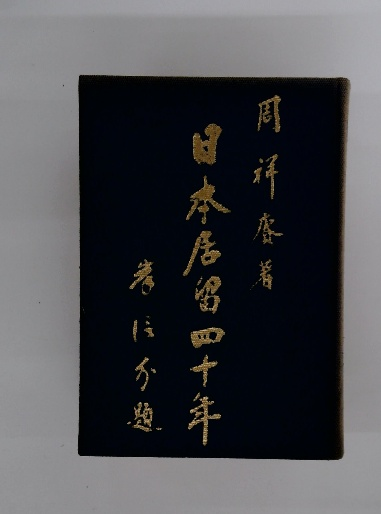 周祥賡著
日本居留四十年
岸信介題